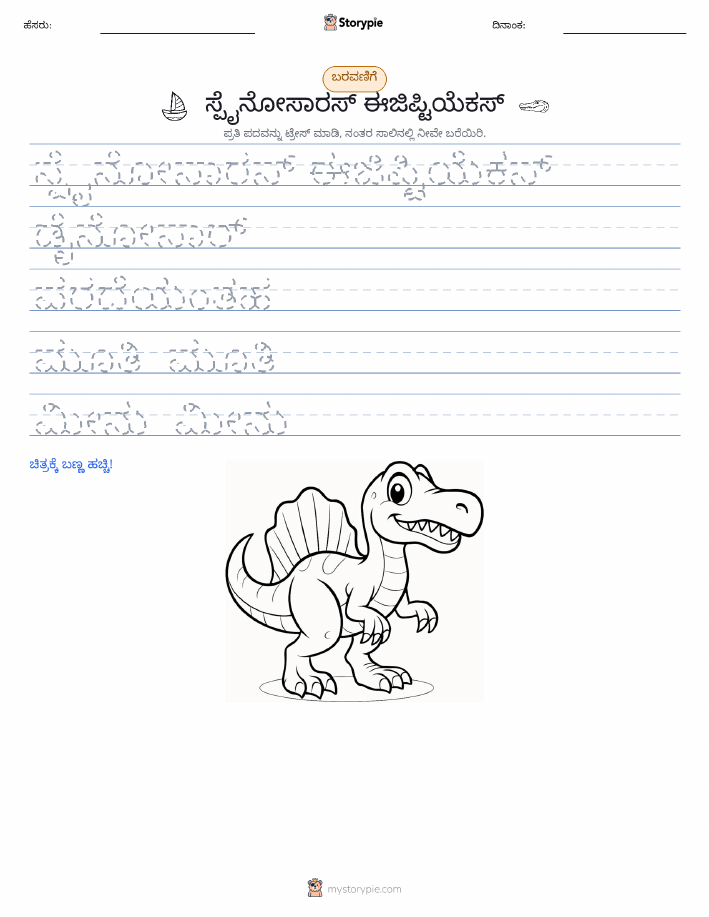 ಹೆಸರು:
Storypie
ದಿನಾಂಕ:
ಬರವಣಿಗೆ
ಸ್ಪೈನೋಸಾರಸ್ ಈಜಿಪ್ಟಿಯೆಕಸ್
ಪ್ರತಿ ಪದವನ್ನು ಟ್ರೇಸ್ ಮಾಡಿ, ನಂತರ ಸಾಲಿನಲ್ಲಿ ನೀವೇ ಬರೆಯಿರಿ.
ಸ್ಪೈನೋಸಾರಸ್ ಈಜಿಪ್ಟಿಯೆಕಸ್
ಡೈನೋಸಾರ್
ಪರದೆಯಂತಹ
ಮೂತಿ ಮೂತಿ
ಮೀನು ಮೀನು
ಚಿತ್ರಕ್ಕೆ ಬಣ್ಣ ಹಚ್ಚಿ!
mystorypie.com